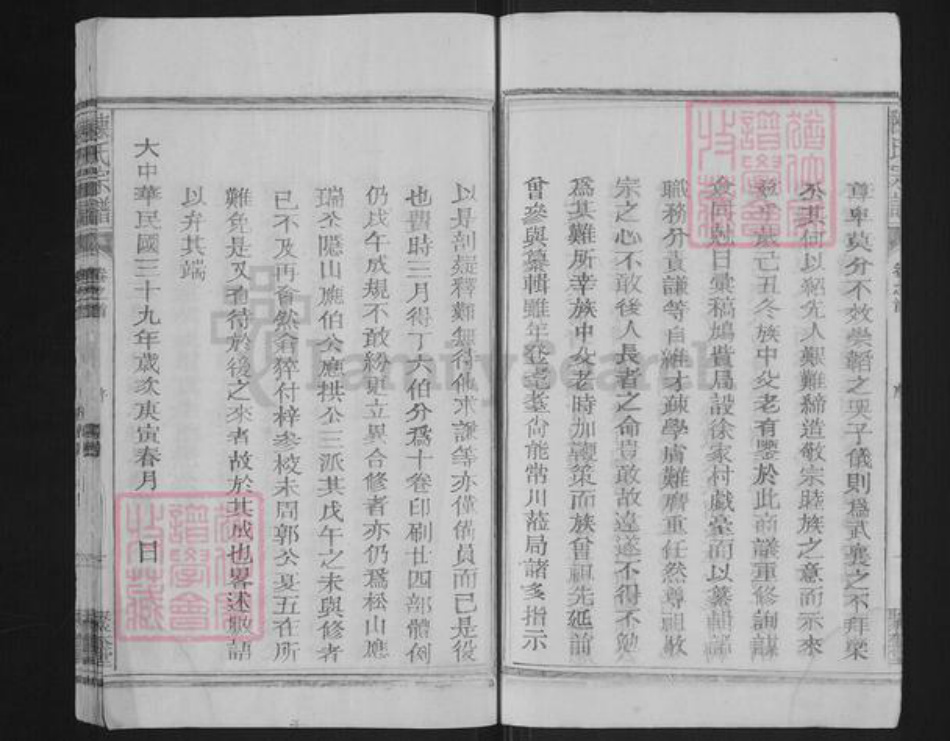 尊卑莫分不效崇韜之哭子儀則為武襄之不拜梁
公其何以紹先人艱難締造敬宗睦族之意而示來
茲乎歲己丑冬族中父老有鑒於此商議重修詢謀
僉同尅日彙稿鳩貲局設徐家村戲臺而以纂輯諸
職務分責謙等自維才疎學膚難膺重任然尊祖敬
宗之心不敢後人長者之命豈敢故違遂不得不勉
為其難所幸族中父老時加鞭策而族曾祖先延前
曾參與纂輯雖年登老耄尚能常川蒞局諸多指示
以是剖疑釋難無待他求謙等亦僅備員而已是役
也費時三月得丁六伯分為十卷印刷廿四部體例
仍戊午成規不敢紛更立異合修者亦仍為松山應
瑞公隱山應伯公應拱公三派其戊午之未與修者
已不及再會然倉猝付梓參校未周郭公夏五在所
難免是又有待於後之來者故於其成也畧述數語
以弁其端
大中華民國三十九年歲次庚寅春月 日
陳氏宗譜
卷之首
序